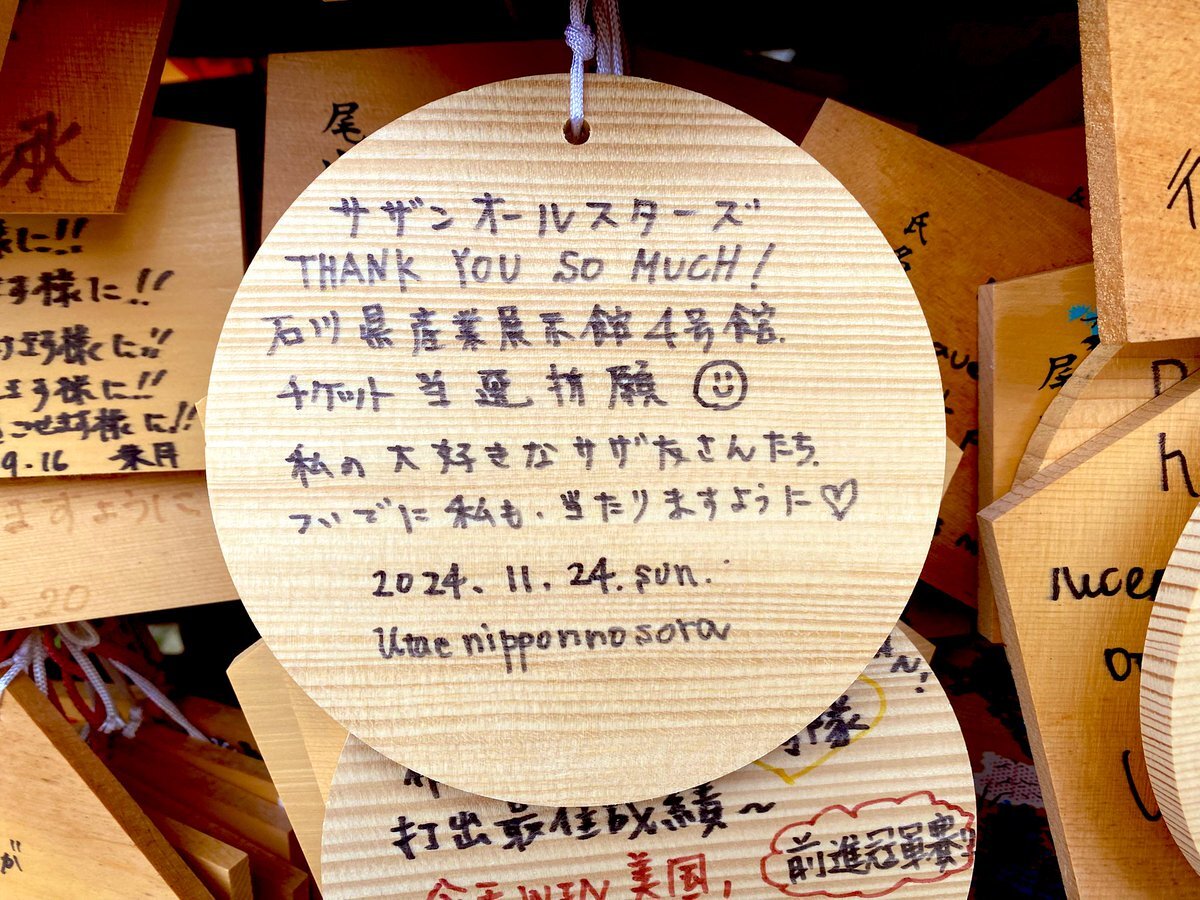 サザンオールスターズ
THANK YOU SO MUCH!
石川県産業展示館4号館.
チケット当選祈願
私の大好きなサザ友さんたち.
ついでに私も、当たりますように♡
2024.11.24.sun.
Utae nipponno sora
承
様に!!
様に!!
様に!!
様に!!
9.16
ますように
20
尾
氏名
尾
打出最佳成績~
前進冠軍賽
今天WIN美国,
が